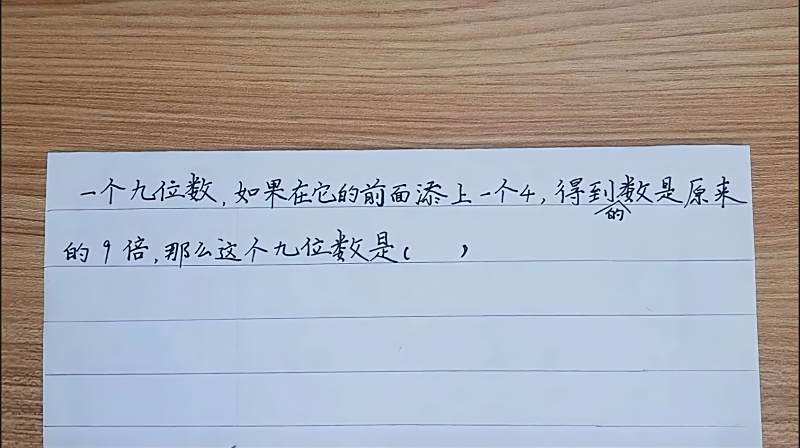 一个九位数,如果在它的前面添上一个4,得到的数是原来
的9倍,那么这个九位数是( )